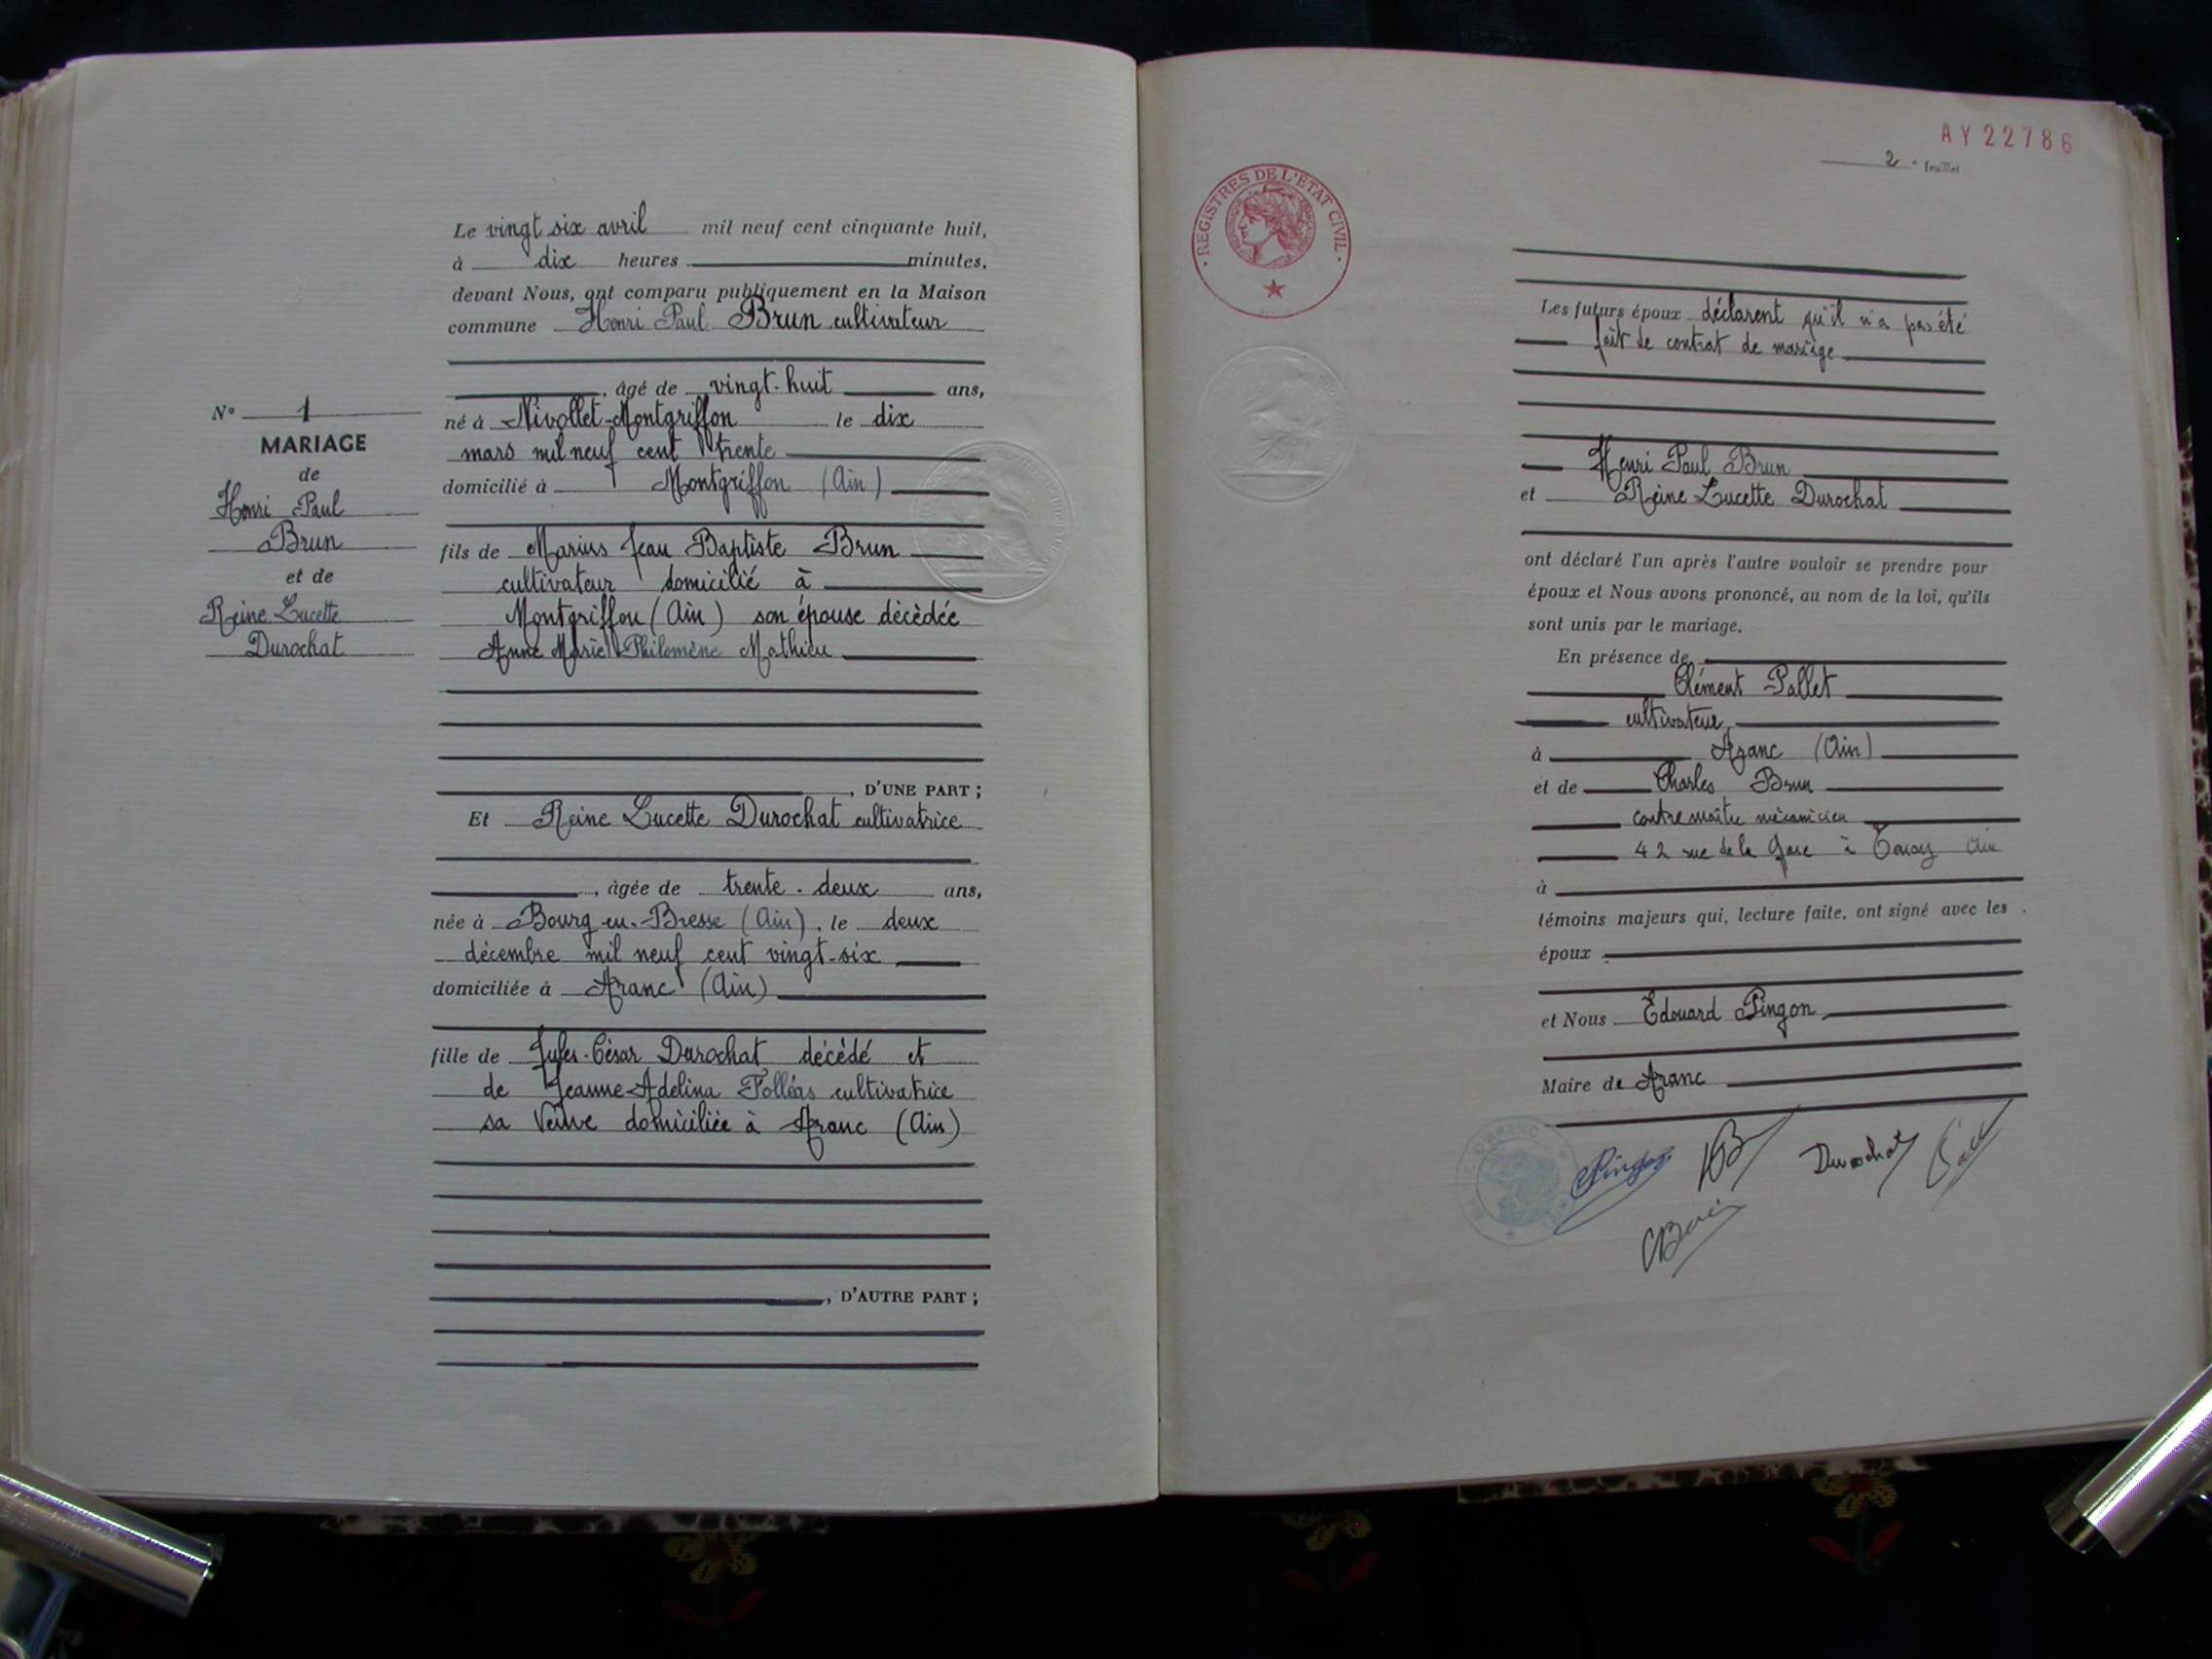 N° 1
MARIAGE
de
Henri Paul
Brun
et de
Reine Lucette
Durochat
Le vingt six avril mil neuf cent cinquante huit,
à dix heures minutes,
devant Nous, ont comparu publiquement en la Maison
commune Henri Paul Brun cultivateur
, âgé de vingt-huit ans,
né à Nivollet-Montgriffon le dix
mars mil neuf cent trente
domicilié à Montgriffon (Ain)
fils de Marius Jean Baptiste Brun
cultivateur domicilié à
Montgriffon (Ain) son épouse décèdée
Anne Marie Philomène Mathieu
, D'UNE PART ;
Et Reine Lucette Durochat cultivatrice
, âgée de trente-deux ans,
née à Bourg-en-Bresse (Ain), le deux
décembre mil neuf cent vingt-six
domiciliée à Aranc (Ain)
fille de Jules-César Durochat décédé et
de Jeanne-Adelina Folléas cultivatrice
sa Veuve domiciliée à Aranc (Ain)
, D'AUTRE PART ;
AY 22786
2. feuillet
REGISTRES DE L'ETAT CIVIL
Les futurs époux déclarent qu'il n'a pas été
fait de contrat de mariage
Henri Paul Brun
et Reine Lucette Durochat
ont déclaré l'un après l'autre vouloir se prendre pour
époux et Nous avons prononcé, au nom de la loi, qu'ils
sont unis par le mariage.
En présence de
Clément Pallet
cultivateur,
à Aranc (Ain)
et de Charles Brun
contremaître mècanicien
42 rue de la Gare à Ain
à
témoins majeurs qui, lecture faite, ont signé avec les
époux
et Nous Edouard Pingon
Maire de Aranc
MAIRIE D'ARANC
Pingon
HB
Durochat